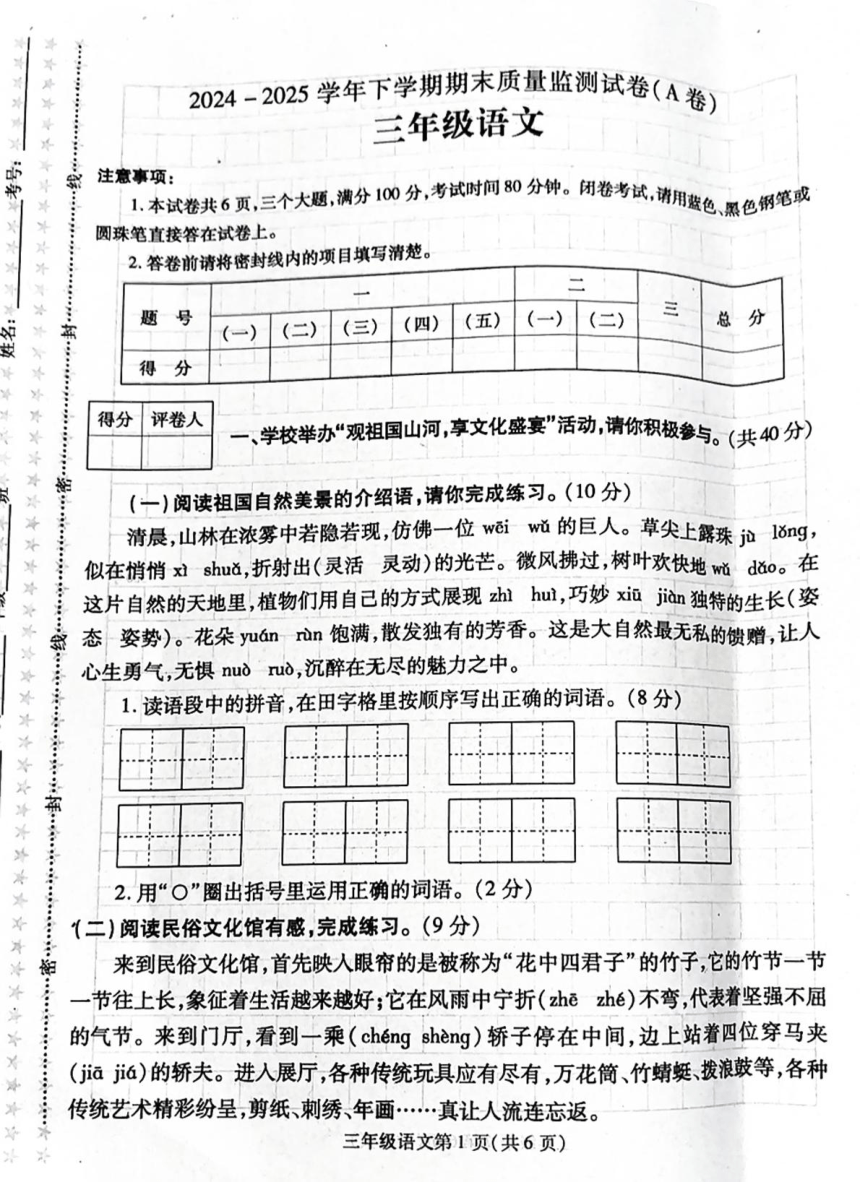 2024－2025学年下学期期末质量监测试卷(A卷)
三年级语文
注意事项:
1.本试卷共6页,三个大题,满分100分,考试时间80分钟。闭卷考试,请用蓝色、黑色钢笔或
圆珠笔直接答在试卷上。
2.答卷前请将密封线内的项目填写清楚。
题 号 一 二 三 总 分
(一) (二) (三) (四) (五) (一) (二)
得 分
得分 评卷人
一、学校举办“观祖国山河,享文化盛宴”活动,请你积极参与。(共40分)
(一)阅读祖国自然美景的介绍语,请你完成练习。(10分)
清晨,山林在浓雾中若隐若现,仿佛一位 wēi wǔ 的巨人。草尖上露珠 jù lǒng,
似在悄悄 xì shuǎ,折射出(灵活 灵动)的光芒。微风拂过,树叶欢快地 wǔ dǎo。在
这片自然的天地里,植物们用自己的方式展现 zhì huì,巧妙 xiū jiàn 独特的生长(姿
态 姿势)。花朵 yuán rùn 饱满,散发独有的芳香。这是大自然最无私的馈赠,让人
心生勇气,无惧 nuò ruò,沉醉在无尽的魅力之中。
1.读语段中的拼音,在田字格里按顺序写出正确的词语。(8分)
2.用“○”圈出括号里运用正确的词语。(2分)
(二)阅读民俗文化馆有感,完成练习。(9分)
来到民俗文化馆,首先映入眼帘的是被称为“花中四君子”的竹子,它的竹节一节
一节往上长,象征着生活越来越好;它在风雨中宁折(zhē zhé)不弯,代表着坚强不屈
的气节。来到门厅,看到一乘(chéng shèng)轿子停在中间,边上站着四位穿马夹
(jiā jiá)的轿夫。进入展厅,各种传统玩具应有尽有,万花筒、竹蜻蜓、拨浪鼓等,各种
传统艺术精彩纷呈,剪纸、刺绣、年画……真让人流连忘返。
三年级语文第1页(共6页)
考号:
姓名:
班
密 封 线 密 封 线